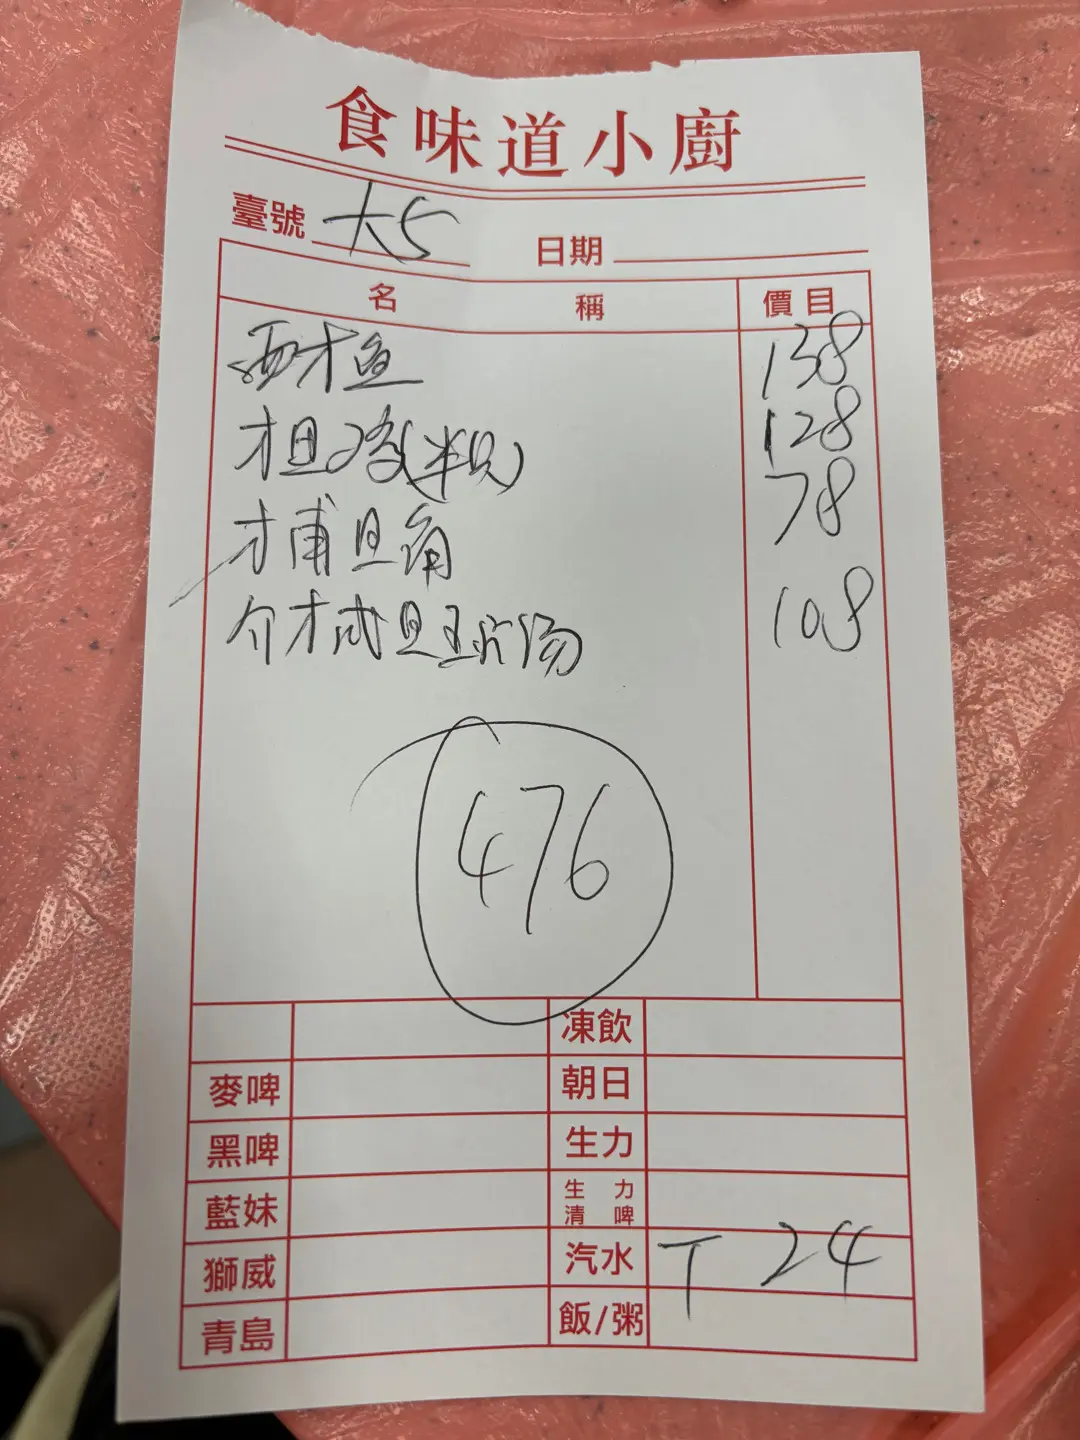 食味道小廚
臺號 大5 日期
名稱 價目
西才魚 138
才且 (半只) 128
才甫旦角 78
介才咸旦玉片汤 108
476
凍飲
麥啤 朝日
黑啤 生力
藍妹 生力清啤
獅威 汽水 T 24
青島 飯/粥